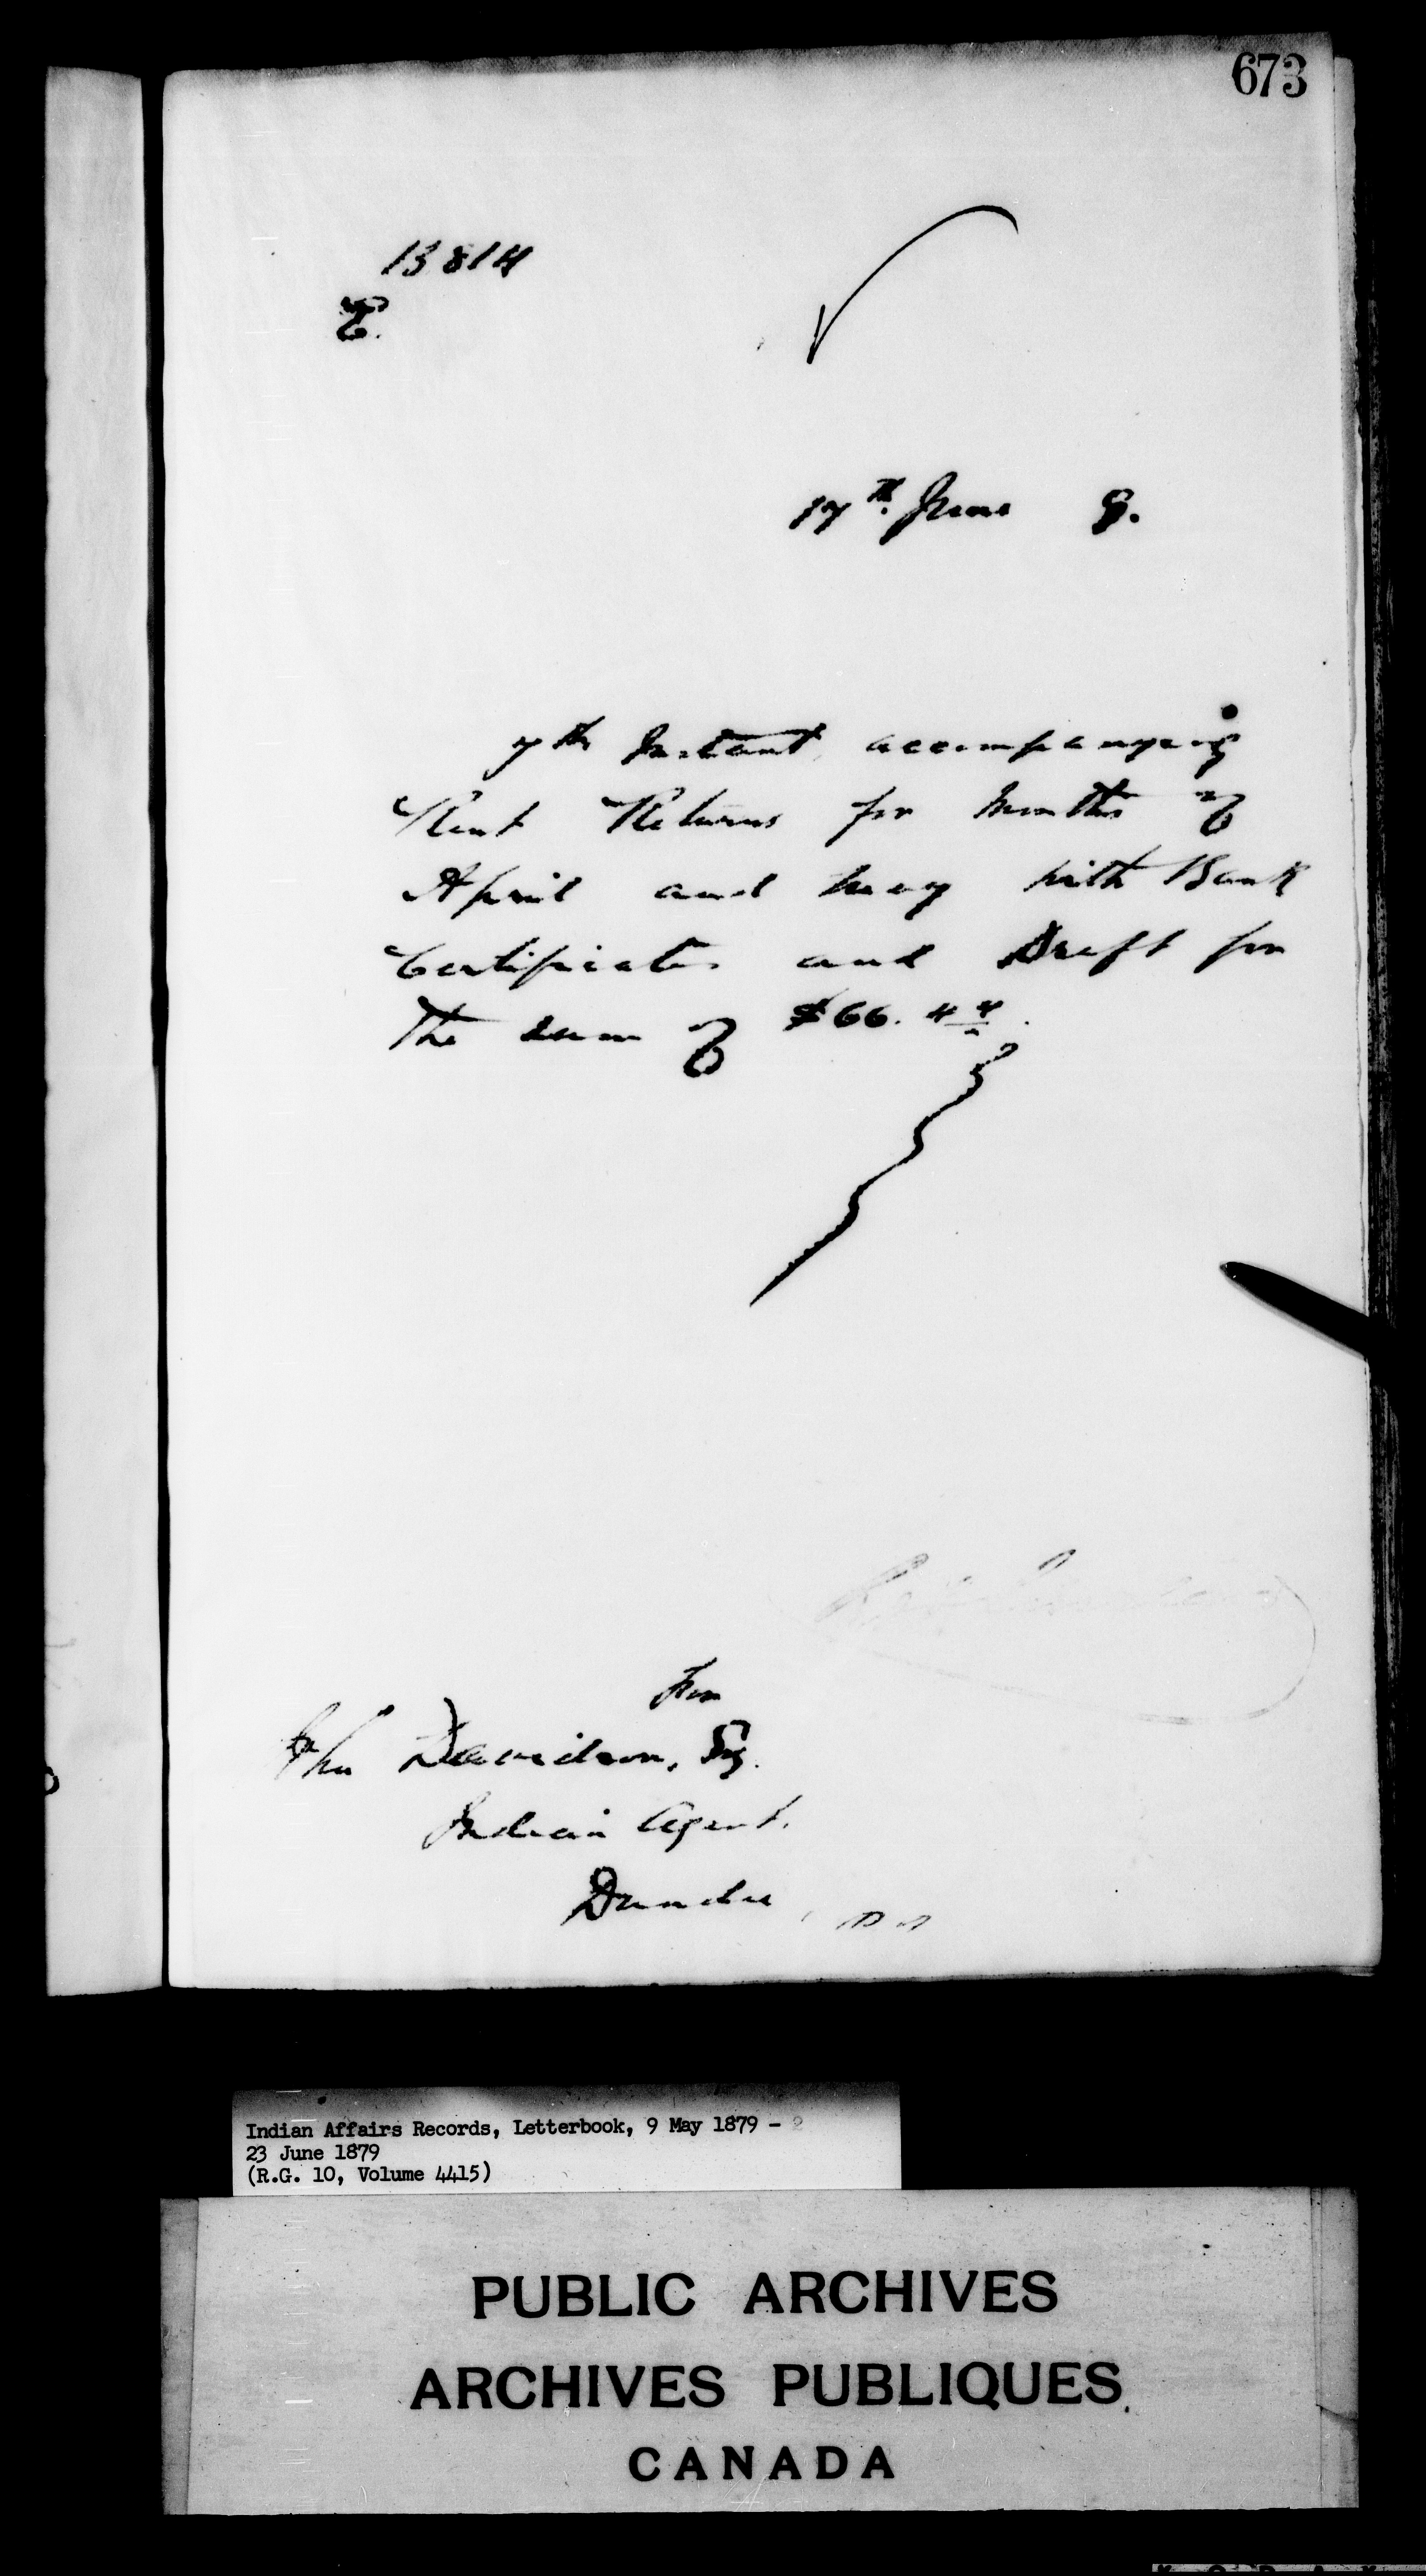 673
13814
E.
17th. June 9.
7th Instant, accompanying
Rent Returns for Months of
April and May with Bank
Certificates and Draft for
the sum of $66.44.
From
Jhn Davidson, Esq.
Indian Agent.
Dundee, P.Q.
Indian Affairs Records, Letterbook, 9 May 1879 -
23 June 1879
(R.G. 10, Volume 4415)
PUBLIC ARCHIVES
ARCHIVES PUBLIQUES
CANADA